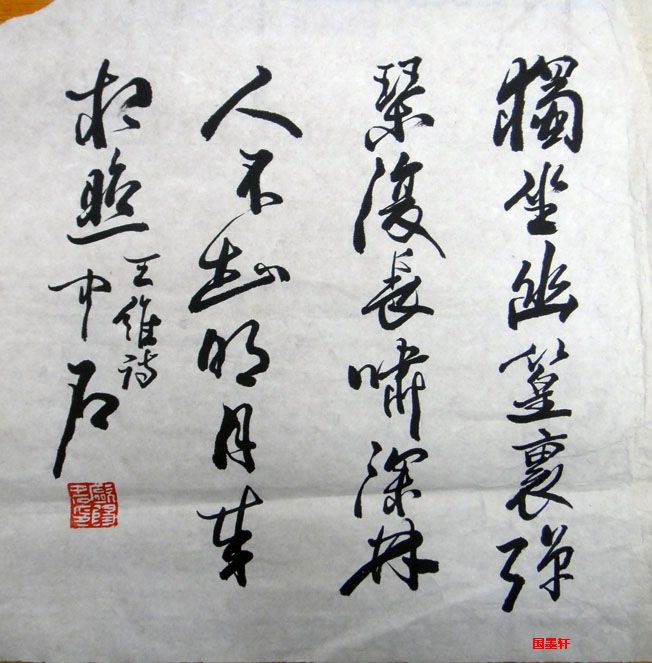 獨坐幽篁裏彈
琴復長嘯深林
人不知明月來
相照
王維詩
中石
国墨轩